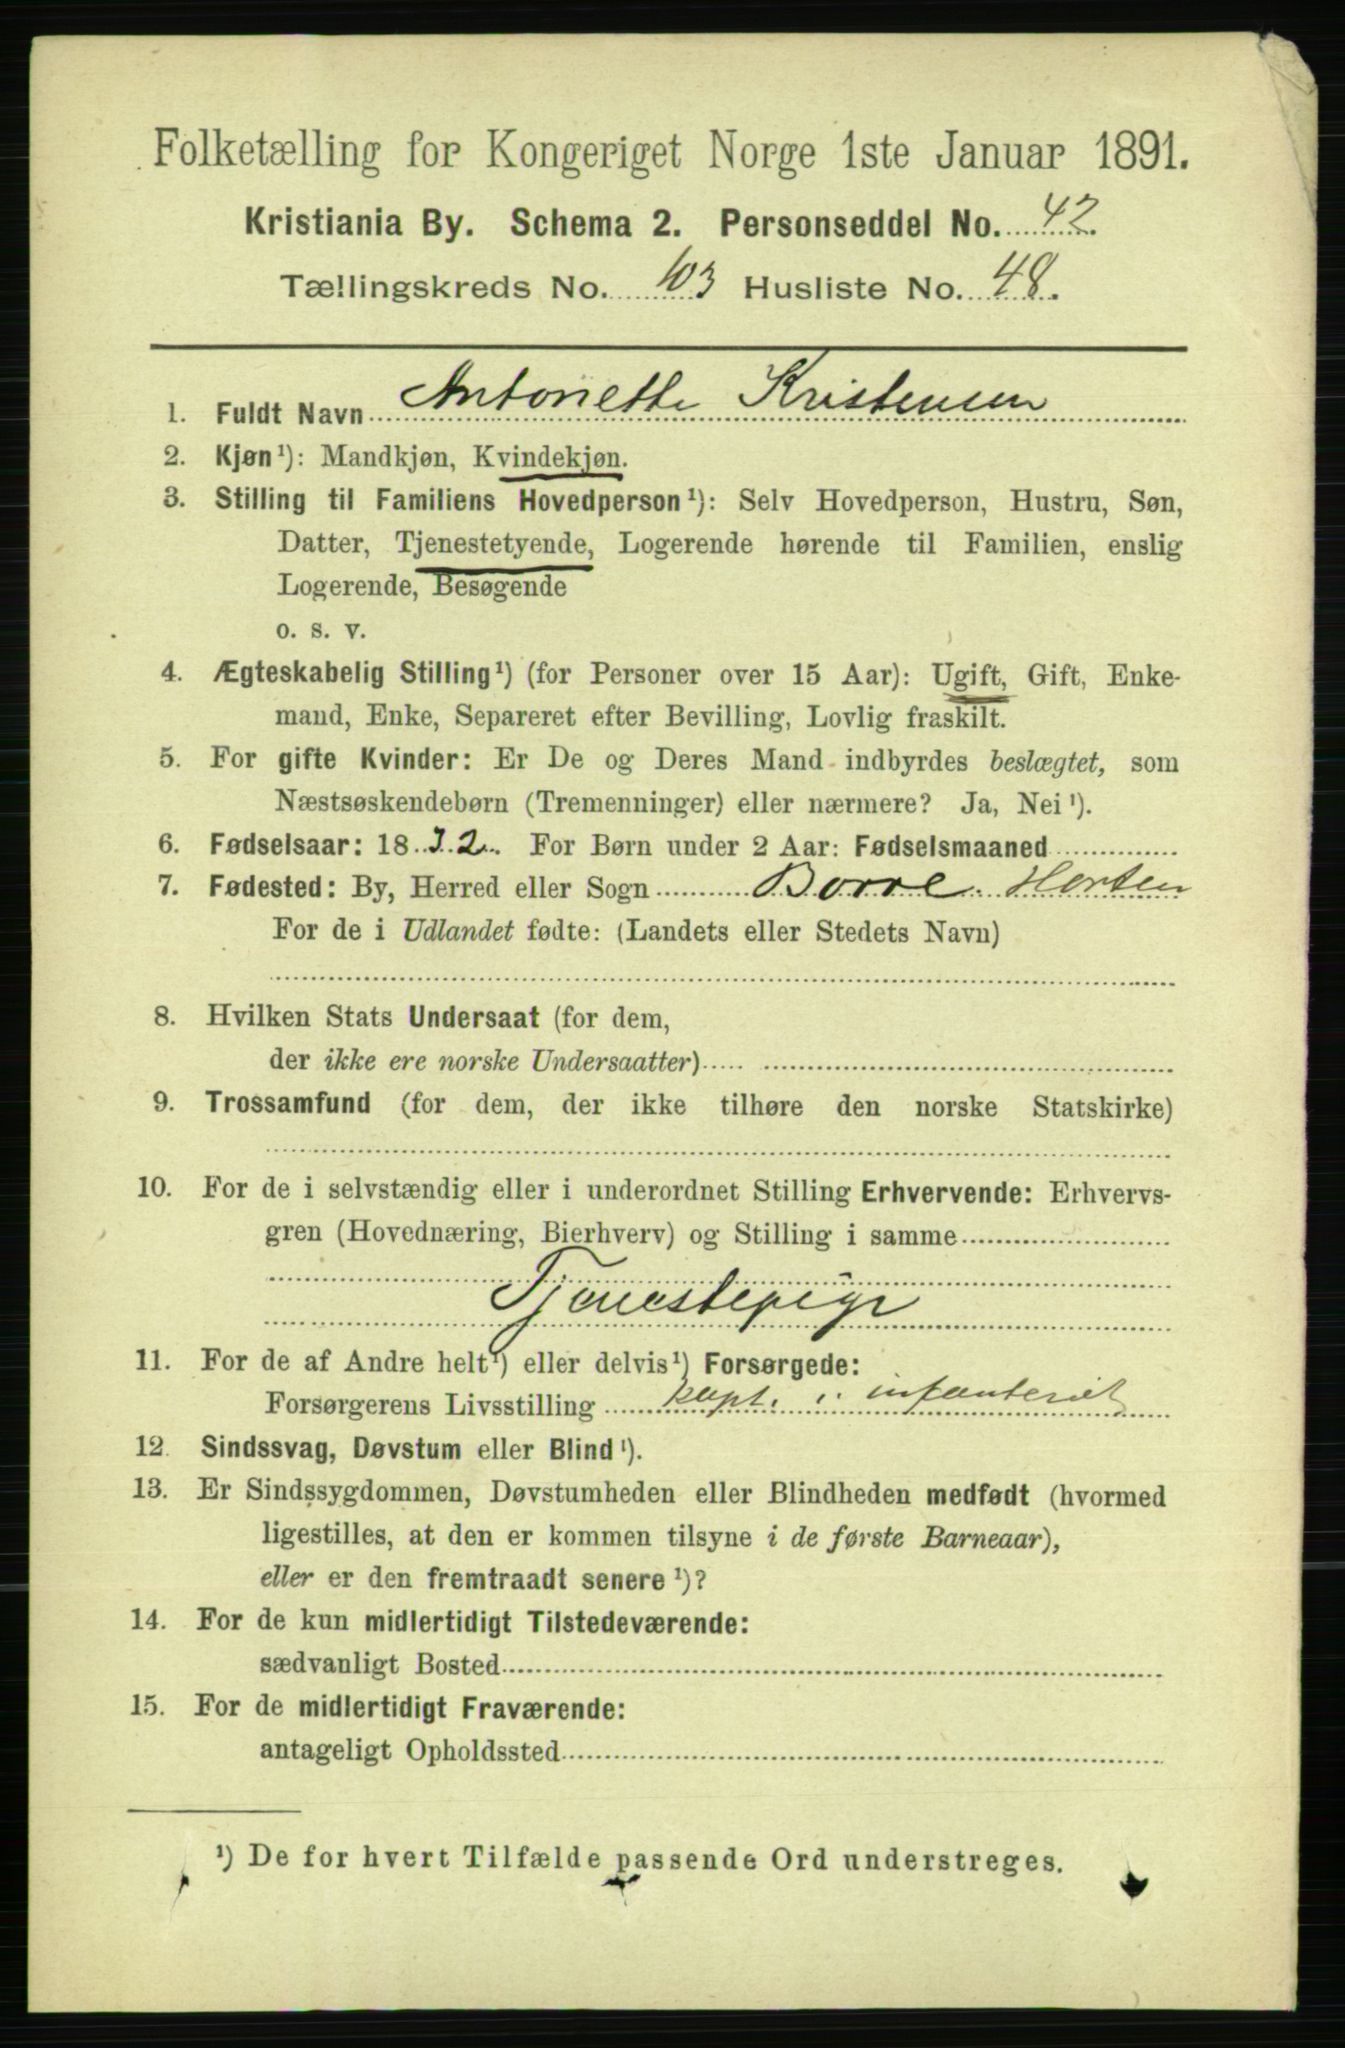 Folketælling for Kongeriget Norge 1ste Januar 1891.
Kristiania By. Schema 2. Personseddel No. 42.
Tællingskreds No. 103 Husliste No. 48.
1. Fuldt Navn Antonette Kristensen
2. Kjøn¹): Mandkjøn, Kvindekjøn.
3. Stilling til Familiens Hovedperson¹): Selv Hovedperson, Hustru, Søn,
Datter, Tjenestetyende, Logerende hørende til Familien, enslig
Logerende, Besøgende
o. s. v.
4. Ægteskabelig Stilling¹) (for Personer over 15 Aar): Ugift, Gift, Enke-
mand, Enke, Separeret efter Bevilling, Lovlig fraskilt.
5. For gifte Kvinder: Er De og Deres Mand indbyrdes beslægtet, som
Næstsøskendebørn (Tremenninger) eller nærmere? Ja, Nei¹).
6. Fødselsaar: 1832. For Børn under 2 Aar: Fødselsmaaned
7. Fødested: By, Herred eller Sogn Borre. Horten
For de i Udlandet fødte: (Landets eller Stedets Navn)
8. Hvilken Stats Undersaat (for dem,
der ikke ere norske Undersaatter)
9. Trossamfund (for dem, der ikke tilhøre den norske Statskirke)
10. For de i selvstændig eller i underordnet Stilling Erhvervende: Erhvervs-
gren (Hovednæring, Bierhverv) og Stilling i samme
Tjenestepige
11. For de af Andre helt¹) eller delvis¹) Forsørgede:
Forsørgerens Livsstilling kapt. i infanteriet
12. Sindssvag, Døvstum eller Blind¹).
13. Er Sindssygdommen, Døvstumheden eller Blindheden medfødt (hvormed
ligestilles, at den er kommen tilsyne i de første Barneaar),
eller er den fremtraadt senere¹)?
14. For de kun midlertidigt Tilstedeværende:
sædvanligt Bosted
15. For de midlertidigt Fraværende:
antageligt Opholdssted
¹) De for hvert Tilfælde passende Ord understreges.